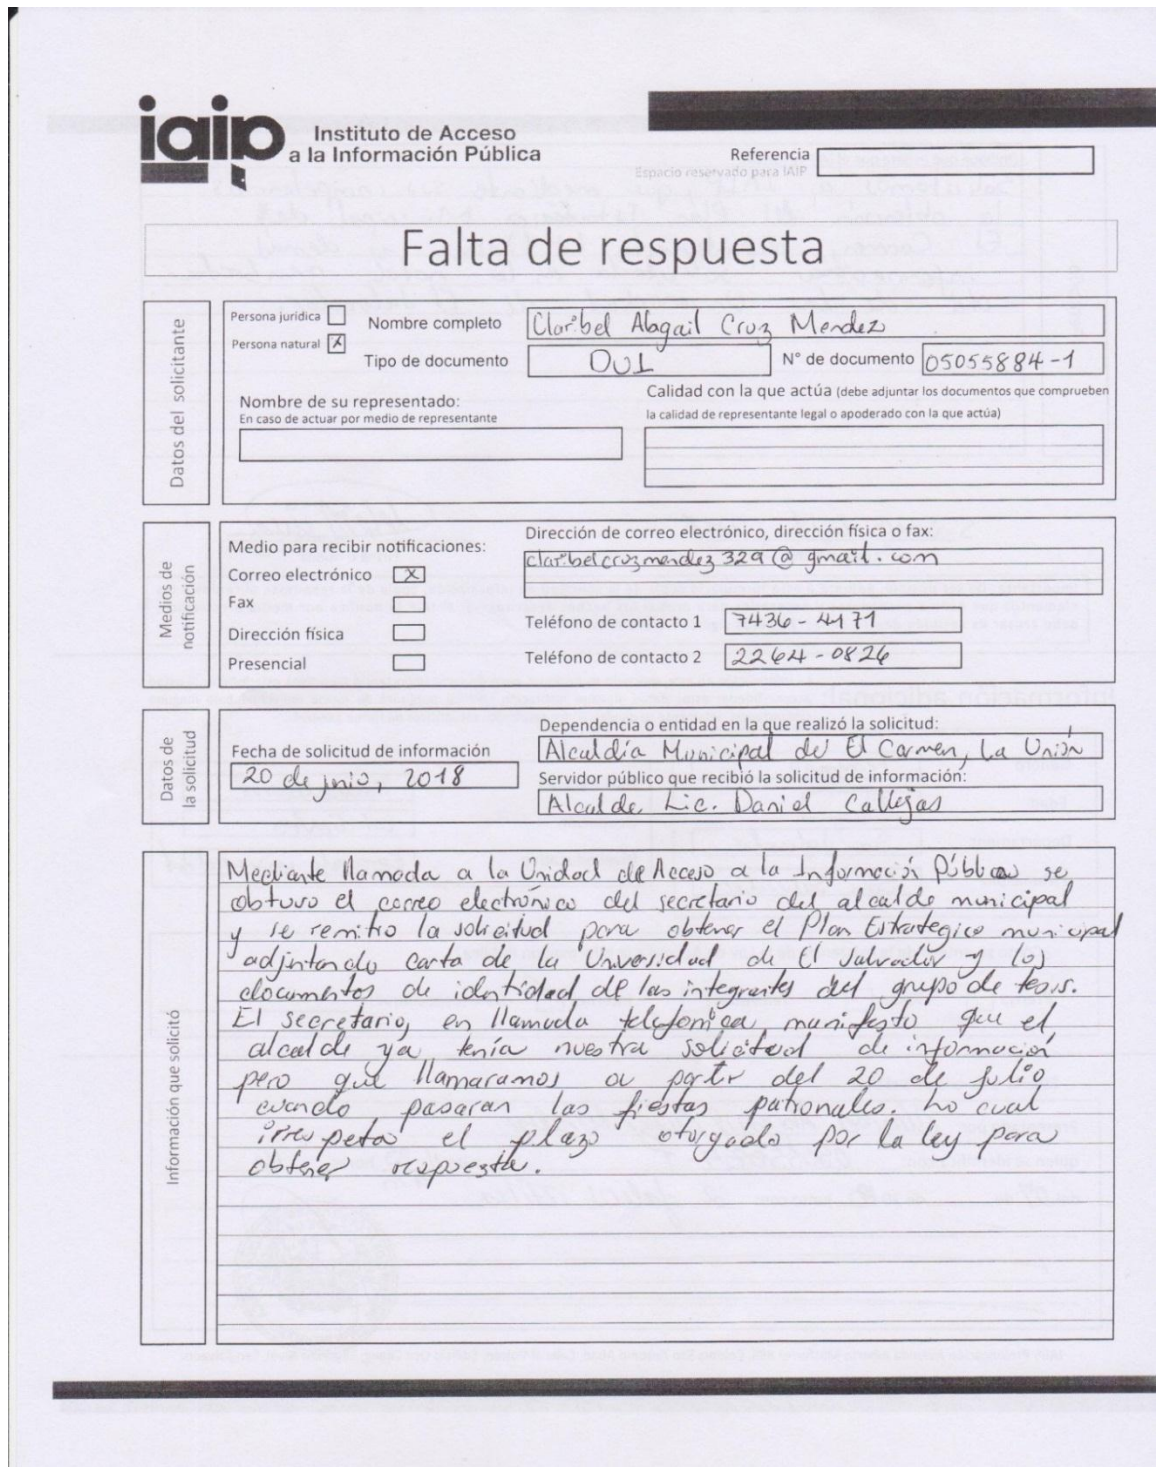 iaip Instituto de Acceso
a la Información Pública
Referencia
Espacio reservado para IAIP
Falta de respuesta
Datos del solicitante
Persona jurídica
Persona natural X
Nombre completo Claribel Abagail Cruz Mendez
Tipo de documento DUI N° de documento 05055884-1
Nombre de su representado:
En caso de actuar por medio de representante
Calidad con la que actúa (debe adjuntar los documentos que comprueben
la calidad de representante legal o apoderado con la que actúa)
Medios de
notificación
Medio para recibir notificaciones:
Correo electrónico X
Fax
Dirección física
Presencial
Dirección de correo electrónico, dirección física o fax:
claribelcruzmendez329@gmail.com
Teléfono de contacto 1 7436-4171
Teléfono de contacto 2 2264-0826
Datos de
la solicitud
Fecha de solicitud de información
20 de junio, 2018
Dependencia o entidad en la que realizó la solicitud:
Alcaldía Municipal de El Carmen, La Unión
Servidor público que recibió la solicitud de información:
Alcalde Lic. Daniel Callejas
Información que solicitó
Mediante llamada a la Unidad de Acceso a la Información Pública se
obtuvo el correo electrónico del secretario del alcalde municipal
y se remitio la solicitud para obtener el Plan Estrategico municipal
adjuntando carta de la Universidad de El Salvador y los
documentos de identidad de las integrantes del grupo de tesis.
El secretario, en llamada telefonica, manifesto que el
alcalde ya tenía nuestra solicitud de información
pero que llamaramos a partir del 20 de julio
cuando pasaran las fiestas patronales. Lo cual
irrespeta el plazo otorgado por la ley para
obtener respuesta.